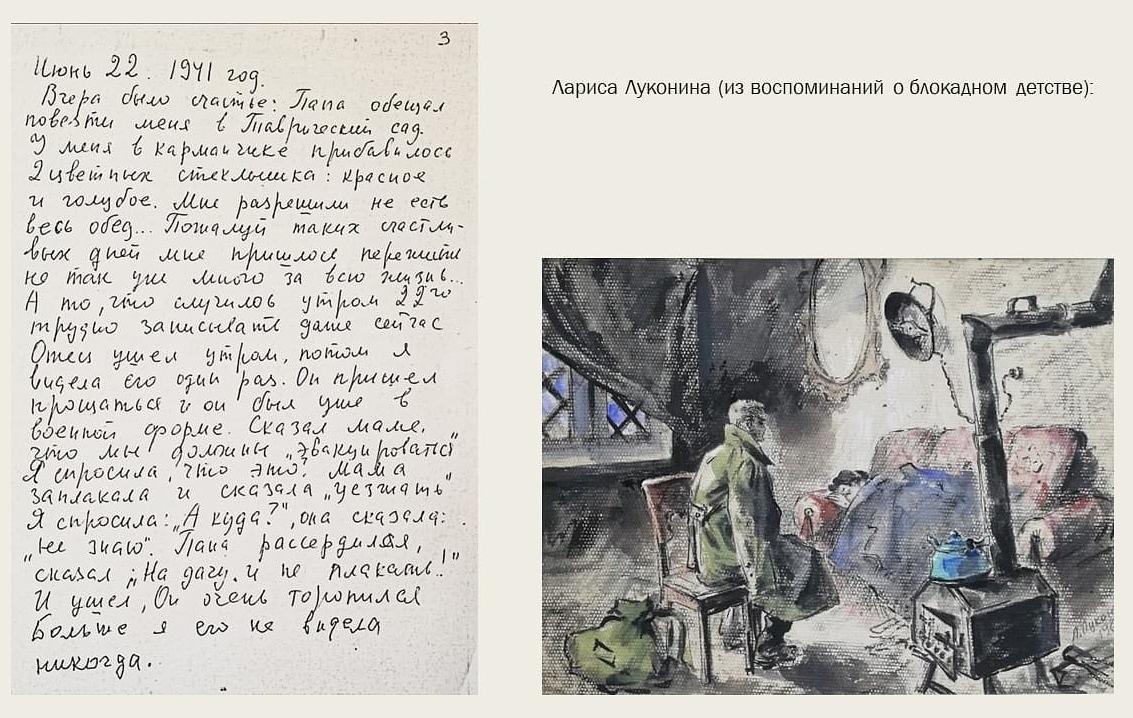 3
Июнь 22. 1941 год.
Вчера было счастье: Папа обещал
повезти меня в Таврический сад.
У меня в карманчике прибавилось
2 цветных стеклышка: красное
и голубое. Мне разрешили не есть
весь обед... Пожалуй таких счастли-
вых дней мне пришлось пережить
не так уж много за всю жизнь...
А то, что случилось утром 22го
трудно записывать даже сейчас
Отец ушел утром, потом я
видела его один раз. Он пришел
прощаться и он был уже в
военной форме. Сказал маме,
что мы должны „эвакуироваться"
Я спросила, что это? Мама
заплакала и сказала „уезжать"
Я спросила: „А куда?", она сказала:
„не знаю". Папа рассердился,
сказал: „На дачу. и не плакать..!"
И ушел, Он очень торопился
Больше я его не видела
никогда.
Лариса Луконина (из воспоминаний о блокадном детстве):